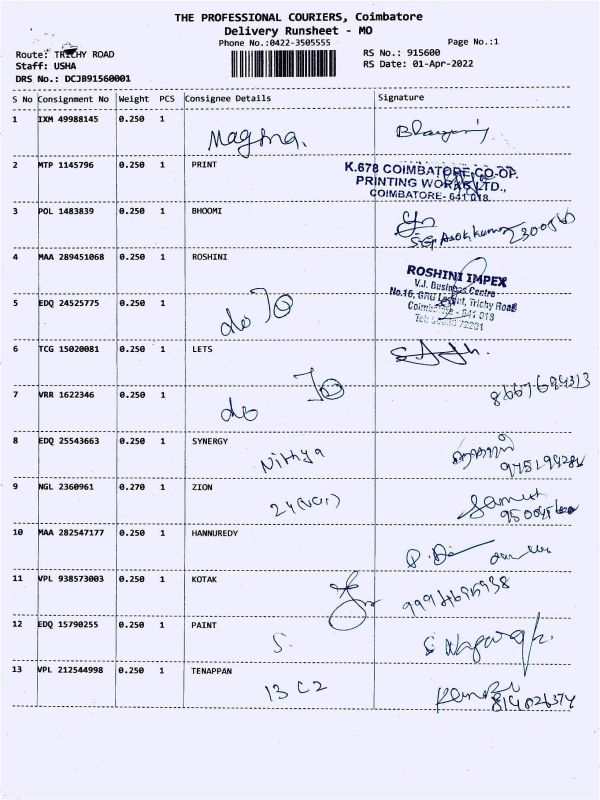 THE PROFESSIONAL COURIERS, Coimbatore
Delivery Runsheet - MO
Phone No.:0422-3505555
Page No.:1
Route: TRICHY ROAD
RS No.: 915600
Staff: USHA
RS Date: 01-Apr-2022
DRS No.: DCJB91560001
S No Consignment No Weight PCS Consignee Details Signature
1 IXM 49988145 0.250 1
2 MTP 1145796 0.250 1 PRINT
K.678 COIMBATORE CO-OP.
PRINTING WORKS LTD.,
COIMBATORE- 641 018.
3 POL 1483839 0.250 1 BHOOMI
4 MAA 289451068 0.250 1 ROSHINI
ROSHINI IMPEX
V.J. Business Centre
No.16, GRG Layout, Trichy Road
Coimbatore - 641 018
5 EDQ 24525775 0.250 1 do
6 TCG 15020081 0.250 1 LETS
7 VRR 1622346 0.250 1 do
8 EDQ 25543663 0.250 1 SYNERGY
Nithya
9 NGL 2360961 0.270 1 ZION
10 MAA 282547177 0.250 1 HANNUREDY
11 VPL 938573003 0.250 1 KOTAK
12 EDQ 15790255 0.250 1 PAINT
S.
13 VPL 212544998 0.250 1 TENAPPAN
13 C2